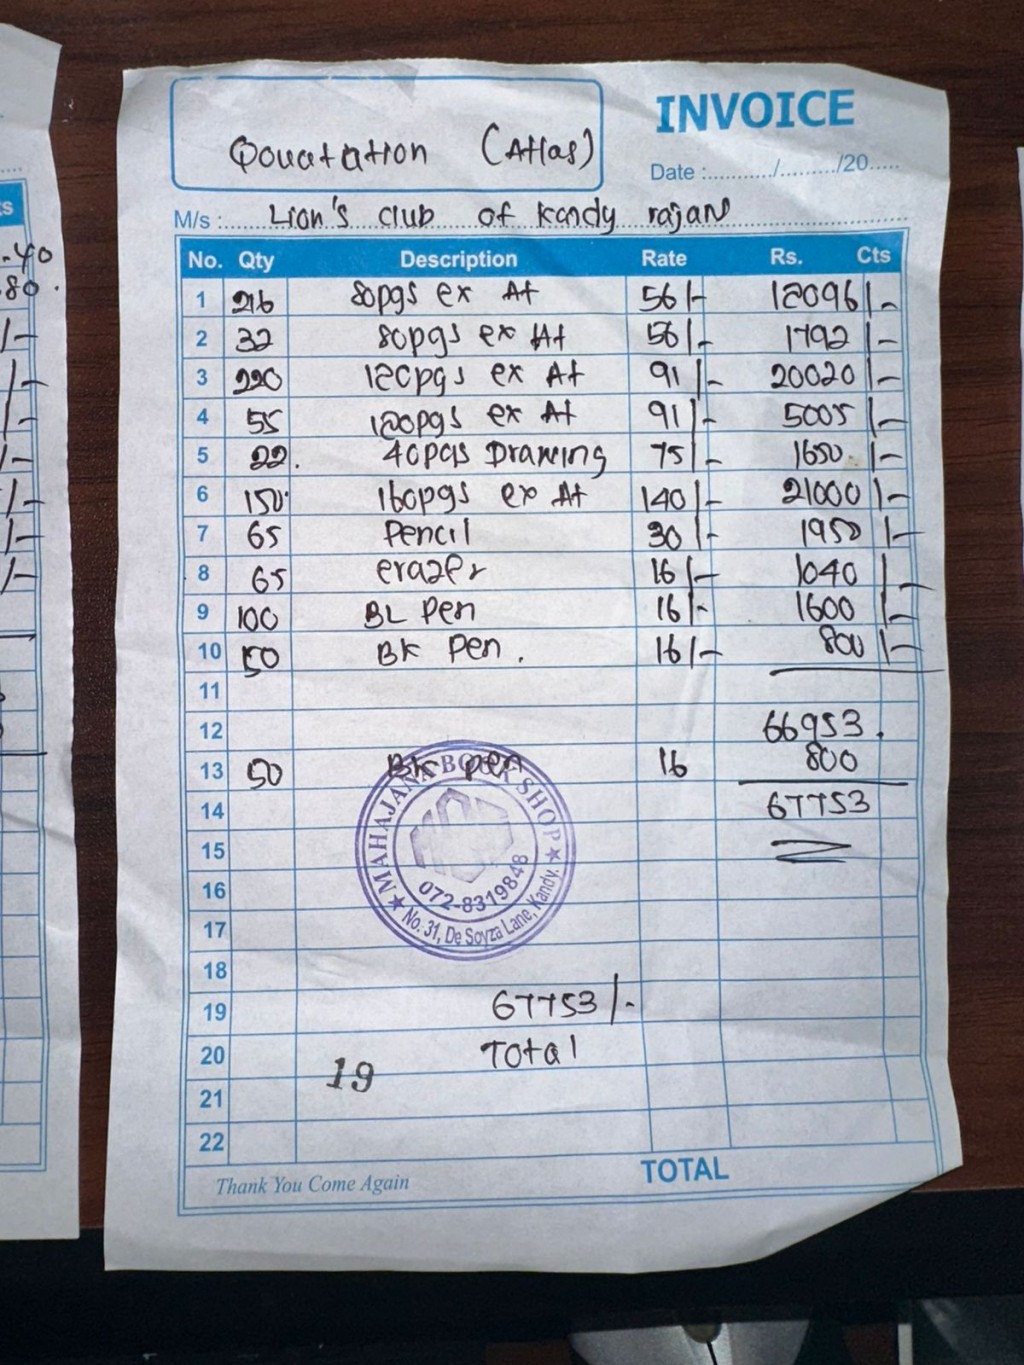 Qouatation (Atlas)
INVOICE
Date :........../........../20.....
M/s : Lion's club of kandy rajans
No. Qty Description Rate Rs. Cts
1 216 80pgs ex At 56/- 12096/-
2 32 80pgs ex At 56/- 1792/-
3 220 120pgs ex At 91/- 20020/-
4 55 120pgs ex At 91/- 5005/-
5 22. 40pgs Drawing 75/- 1650/-
6 150 160pgs ex At 140/- 21000/-
7 65 Pencil 30/- 1950/-
8 65 erazer 16/- 1040/-
9 100 BL Pen 16/- 1600/-
10 50 BK Pen. 16/- 800/-
11
12 66953.
13 50 BK pen 16 800
14 67753
15
MAHAJANA BOOK SHOP
072-8319848
No. 31, De Soyza Lane, Kandy.
16
17
18
19 67753/-
20 Total
19
21
22
TOTAL
Thank You Come Again